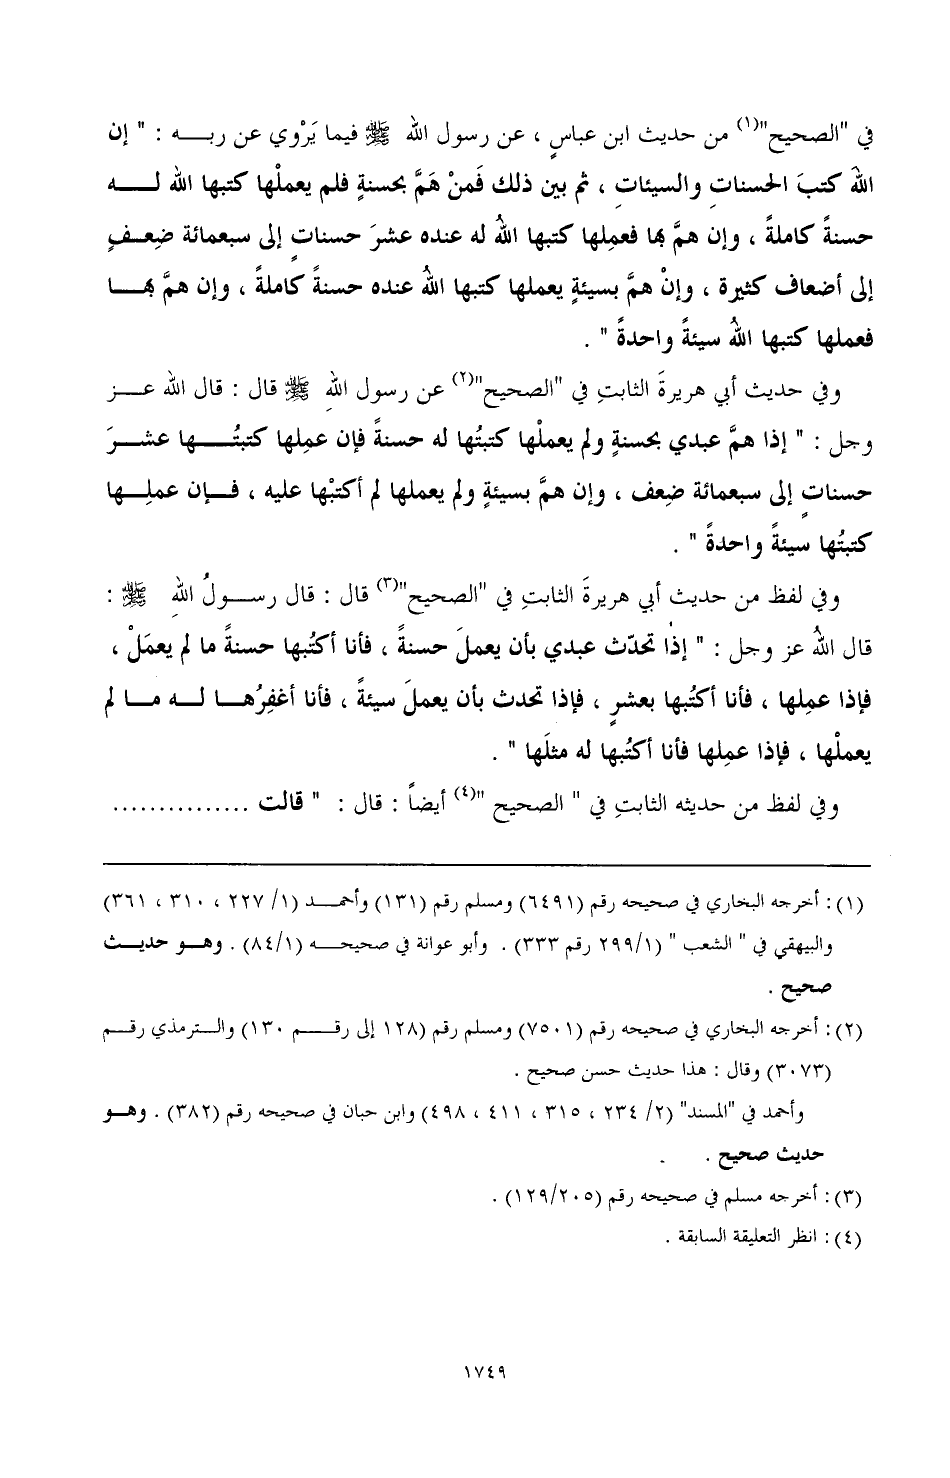 في "الصحيح"(١) من حديث ابن عباسٍ ، عن رسول الله ﷺ فيما يَرْوي عن ربـــه : " إن
اللهَ كتبَ الحسناتِ والسيئاتِ ، ثم بين ذلك فَمنْ هَمَّ بحسنةٍ فلم يعملْها كتبها الله لـــه
حسنةً كاملةً ، وإن همَّ بها فعمِلها كتبها اللهُ له عنده عشرَ حسناتٍ إلى سبعمائة ضِعـفٍ
إلى أضعاف كثيرة ، وإنْ همَّ بسيئةٍ يعملها كتبها اللهُ عنده حسنةً كاملةً ، وإن همَّ بهـــا
فعملها كتبها اللهُ سيئةً واحدةً " .
وفي حديث أبي هريرةَ الثابتِ في "الصحيح"(٢) عن رسول اللهِ ﷺ قال : قال الله عـــز
وجل : " إذا همَّ عبدي بحسنةٍ ولم يعملْها كتبتُها له حسنةً فإن عمِلها كتبتُـــها عشـــرَ
حسناتٍ إلى سبعمائة ضِعف ، وإن همَّ بسيئةٍ ولم يعملها لم أكتبْها عليه ، فـــإن عملـــها
كتبتُها سيئةً واحدةً " .
وفي لفظ من حديث أبي هريرةَ الثابتِ في "الصحيح"(٣) قال : قال رســـولُ اللهِ ﷺ :
قال اللهُ عز وجل : " إذا تحدّث عبدي بأن يعملَ حسنةً ، فأنا أكتُبها حسنةً ما لم يعمَلْ ،
فإذا عمِلها ، فأنا أكتُبها بعشرٍ ، فإذا تحدث بأن يعملَ سيئةً ، فأنا أغفِرُهـــا لـــه مـــا لم
يعملْها ، فإذا عمِلها فأنا أكتُبها له مثلَها " .
وفي لفظ من حديثه الثابتِ في " الصحيح "(٤) أيضاً : قال : " قالت ...............
(١): أخرجه البخاري في صحيحه رقم (٦٤٩١) ومسلم رقم (١٣١) وأحمـــد (١/ ٢٢٧ ، ٣١٠ ، ٣٦١)
والبيهقي في " الشعب " (٢٩٩/١ رقم ٣٣٣) . وأبو عوانة في صحيحـــه (٨٤/١) . وهـــو حديـــث
صحيح .
(٢): أخرجه البخاري في صحيحه رقم (٧٥٠١) ومسلم رقم (١٢٨ إلى رقـــم ١٣٠) والـــترمذي رقـــم
(٣٠٧٣) وقال : هذا حديث حسن صحيح .
وأحمد في "المسند" (٢/ ٢٣٤ ، ٣١٥ ، ٤١١ ، ٤٩٨) وابن حبان في صحيحه رقم (٣٨٢) . وهـــو
حديث صحيح .
(٣): أخرجه مسلم في صحيحه رقم (١٢٩/٢٠٥) .
(٤): انظر التعليقة السابقة .
١٧٤٩